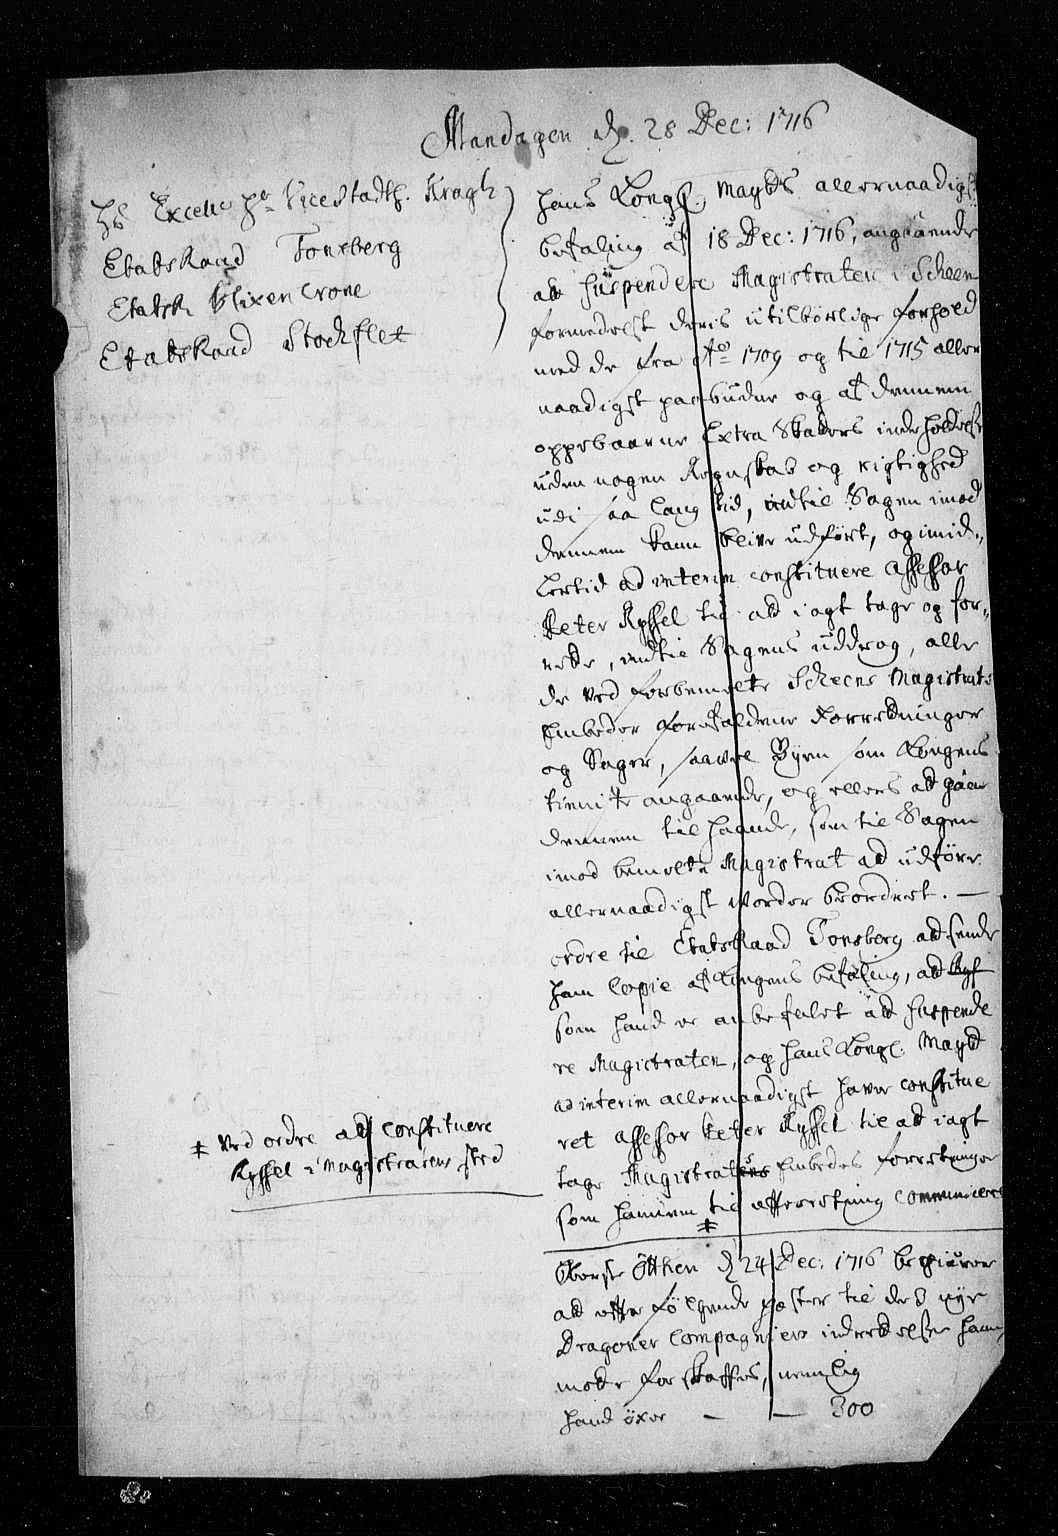 Mandagen d. 28 Dec: 1716
Hs Excell: Hr Vicestadth. Kragh
EtatsRaad Tonsberg
Etatsr. Blixencrone
EtatsRaad Stockflet
Hans Kongl. Mayts allernaadigst
befaling af 18 Dec: 1716, angaaende
at suspendere Magistraten i Scheen
formedelst deris utilbørlige forhold
med de fra Ao 1709 og til 1715 aller
naadigst paabudne og af dennem
oppebaarne Extra Skatters indeholdelse
uden nogen Regnskab og rigtighed
udi saa lang tid, indtil Sagen imod
dennem kand blive udført, og imid-
lertid ad interim constituere Assessor
Peter Ryssel til at i agt tage og for-
rette, indtil Sagens uddrag, alle
de ved forbemelte Scheens Magistrats
Embeder forefaldene Forretninger
og Sager, saavel Byen som Kongens
tieniste angaaende, og ellers at gaae
dennem til haande, som til Sagen
imod bemelte Magistrat at udføre
allernaadigst vorder beordret. —
ordre til EtatsRaad Tonsberg at sende
ham Copie af Kongens befaling, at
som hand er anbefalet at suspende
re Magistraten, og Hans Kongl. Mayt
ad interim allernaadigst haver constitue
ret Assessor Peter Ryssel til at i agt
tage Magistratens Embedes forretninger
som hannem til efterretning communiceres
‡
‡ Ved ordre at constituere
Ryssel i Magistratens sted
Oberste Øtken d 24 Dec: 1716 begierer
at efterfølgende poster til de 3 nye
Dragoner Compagniers indrettelse ham
motte forskaffes, nemlig
Hand öxer — — 300